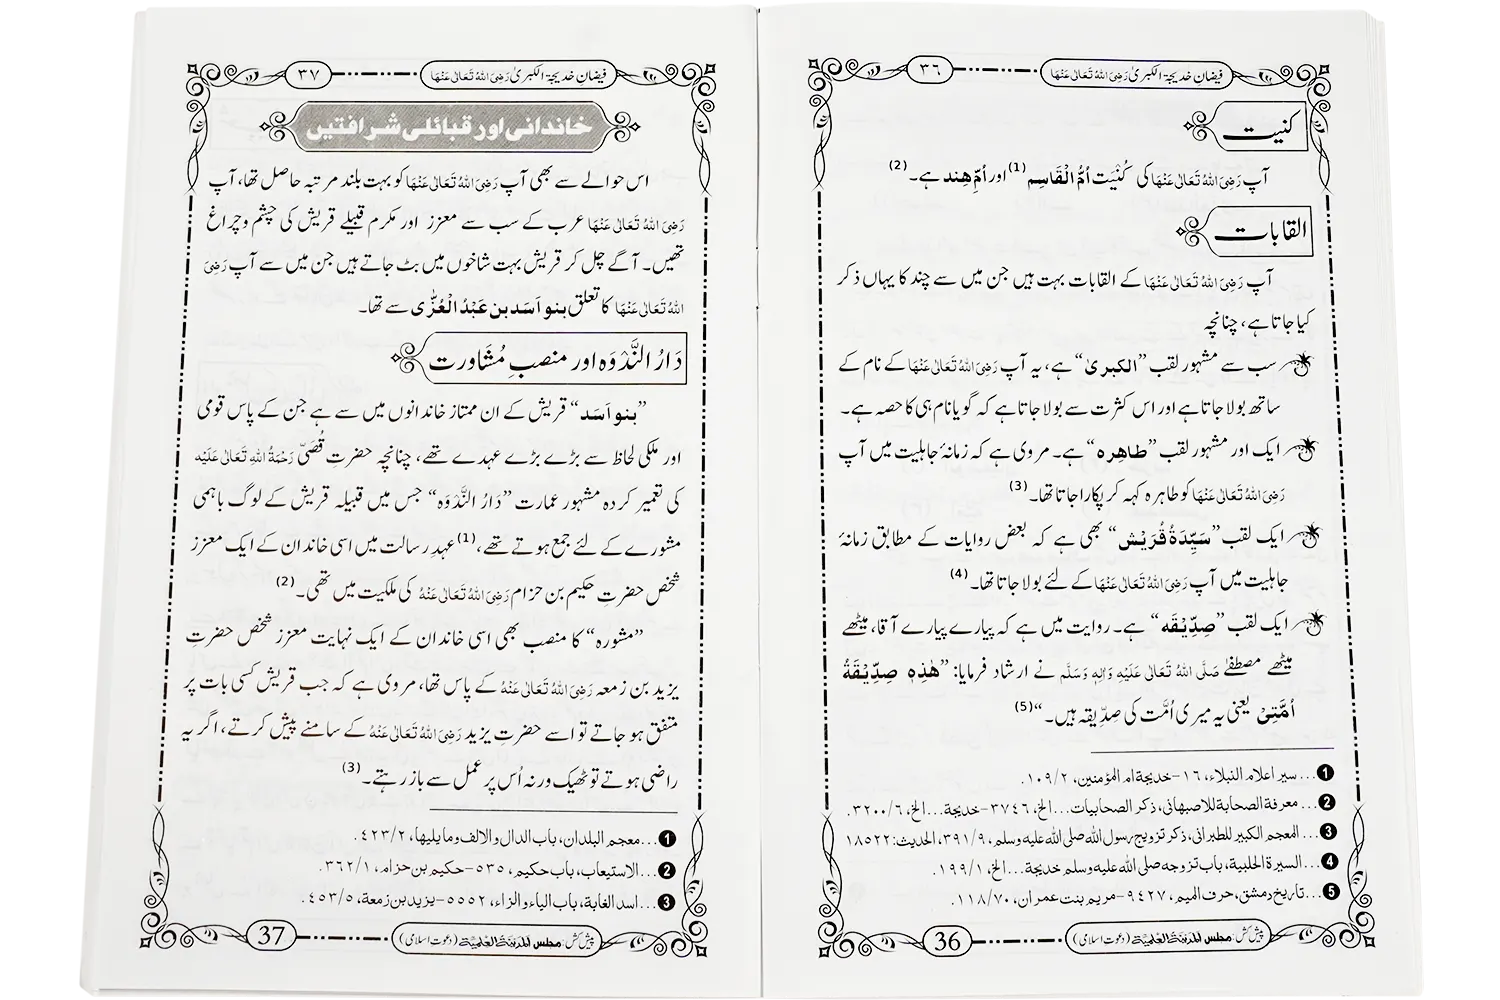 فیضانِ خدیجۃ الکبریٰ رَضِیَ اللہُ تَعَالٰی عَنْہَا
٣٦
کنیت
آپ رَضِیَ اللہُ تَعَالٰی عَنْہَا کی کُنْیَت اُمُّ الْقَاسِم (1) اور اُمِّ ھِند ہے۔ (2)
القابات
آپ رَضِیَ اللہُ تَعَالٰی عَنْہَا کے القابات بہت ہیں جن میں سے چند کا یہاں ذکر
کیا جاتا ہے، چنانچہ
سب سے مشہور لقب ”الکبریٰ“ ہے، یہ آپ رَضِیَ اللہُ تَعَالٰی عَنْہَا کے نام کے
ساتھ بولا جاتا ہے اور اس کثرت سے بولا جاتا ہے کہ گویا نام ہی کا حصہ ہے۔
ایک اور مشہور لقب ”طاھِرہ“ ہے۔ مروی ہے کہ زمانۂ جاہلیت میں آپ
رَضِیَ اللہُ تَعَالٰی عَنْہَا کو طاہرہ کہہ کر پکارا جاتا تھا۔ (3)
ایک لقب ”سَیِّدَۃُ قُرَیْش“ بھی ہے کہ بعض روایات کے مطابق زمانۂ
جاہلیت میں آپ رَضِیَ اللہُ تَعَالٰی عَنْہَا کے لئے بولا جاتا تھا۔ (4)
ایک لقب ”صِدِّیْقَہ“ ہے۔ روایت میں ہے کہ پیارے پیارے آقا، میٹھے
میٹھے مصطفےٰ صَلَّی اللہُ تَعَالٰی عَلَیْہِ وَاٰلِہٖ وَسَلَّم نے ارشاد فرمایا: ”ھٰذِہٖ صِدِّیْقَۃُ
اُمَّتِیْ یعنی یہ میری اُمَّت کی صِدِّیقہ ہیں۔“ (5)
1...سیر اعلام النبلاء، ١٦-خدیجۃ ام المؤمنین، ٢/١٠٩.
2...معرفۃ الصحابۃ للاصبھانی، ذکر الصحابیات...الخ، ٣٧٤٦-خدیجۃ...الخ، ٦/٣٢٠٠.
3...المعجم الکبیر للطبرانی، ذکر تزویج رسول اللہ صلی اللہ علیہ وسلم، ٩/٣٩١، الحدیث: ١٨٥٢٢
4...السیرۃ الحلبیۃ، باب تزوجہ صلی اللہ علیہ وسلم خدیجۃ...الخ، ١/١٩٩.
5...تاریخ دمشق، حرف المیم، ٩٤٢٧-مریم بنت عمران، ٧٠/١١٨.
پیش کش: مجلس المدینۃ العلمیۃ (دعوت اسلامی)
36
فیضانِ خدیجۃ الکبریٰ رَضِیَ اللہُ تَعَالٰی عَنْہَا
٣٧
خاندانی اور قبائلی شرافتیں
اس حوالے سے بھی آپ رَضِیَ اللہُ تَعَالٰی عَنْہَا کو بہت بلند مرتبہ حاصل تھا، آپ
رَضِیَ اللہُ تَعَالٰی عَنْہَا عرب کے سب سے معزز اور مکرم قبیلے قریش کی چشم و چراغ
تھیں۔ آگے چل کر قریش بہت شاخوں میں بٹ جاتے ہیں جن میں سے آپ رَضِیَ
اللہُ تَعَالٰی عَنْہَا کا تعلق بنو اَسَد بن عَبْدُ الْعُزّٰی سے تھا۔
دَارُ النَّدْوَہ اور منصبِ مُشَاورت
”بنو اَسَد“ قریش کے ان ممتاز خاندانوں میں سے ہے جن کے پاس قومی
اور ملکی لحاظ سے بڑے بڑے عہدے تھے، چنانچہ حضرتِ قُصَیّ رَحْمَۃُ اللہِ تَعَالٰی عَلَیْہ
کی تعمیر کردہ مشہور عمارت ”دَارُ النَّدْوَہ“ جس میں قبیلہ قریش کے لوگ باہمی
مشورے کے لئے جمع ہوتے تھے، (1) عہدِ رسالت میں اسی خاندان کے ایک معزز
شخص حضرتِ حکیم بن حزام رَضِیَ اللہُ تَعَالٰی عَنْہُ کی ملکیت میں تھی۔ (2)
”مشورہ“ کا منصب بھی اسی خاندان کے ایک نہایت معزز شخص حضرتِ
یزید بن زمعہ رَضِیَ اللہُ تَعَالٰی عَنْہُ کے پاس تھا، مروی ہے کہ جب قریش کسی بات پر
متفق ہو جاتے تو اسے حضرتِ یزید رَضِیَ اللہُ تَعَالٰی عَنْہُ کے سامنے پیش کرتے، اگر یہ
راضی ہوتے تو ٹھیک ورنہ اُس پر عمل سے باز رہتے۔ (3)
1...معجم البلدان، باب الدال والالف وما یلیھا، ٢/٤٢٣.
2...الاستیعاب، باب حکیم، ٥٣٥-حکیم بن حزام، ١/٣٦٢.
3...اسد الغابۃ، باب الیاء والزاء، ٥٥٥٢-یزید بن زمعۃ، ٥/٤٥٣.
پیش کش: مجلس المدینۃ العلمیۃ (دعوت اسلامی)
37